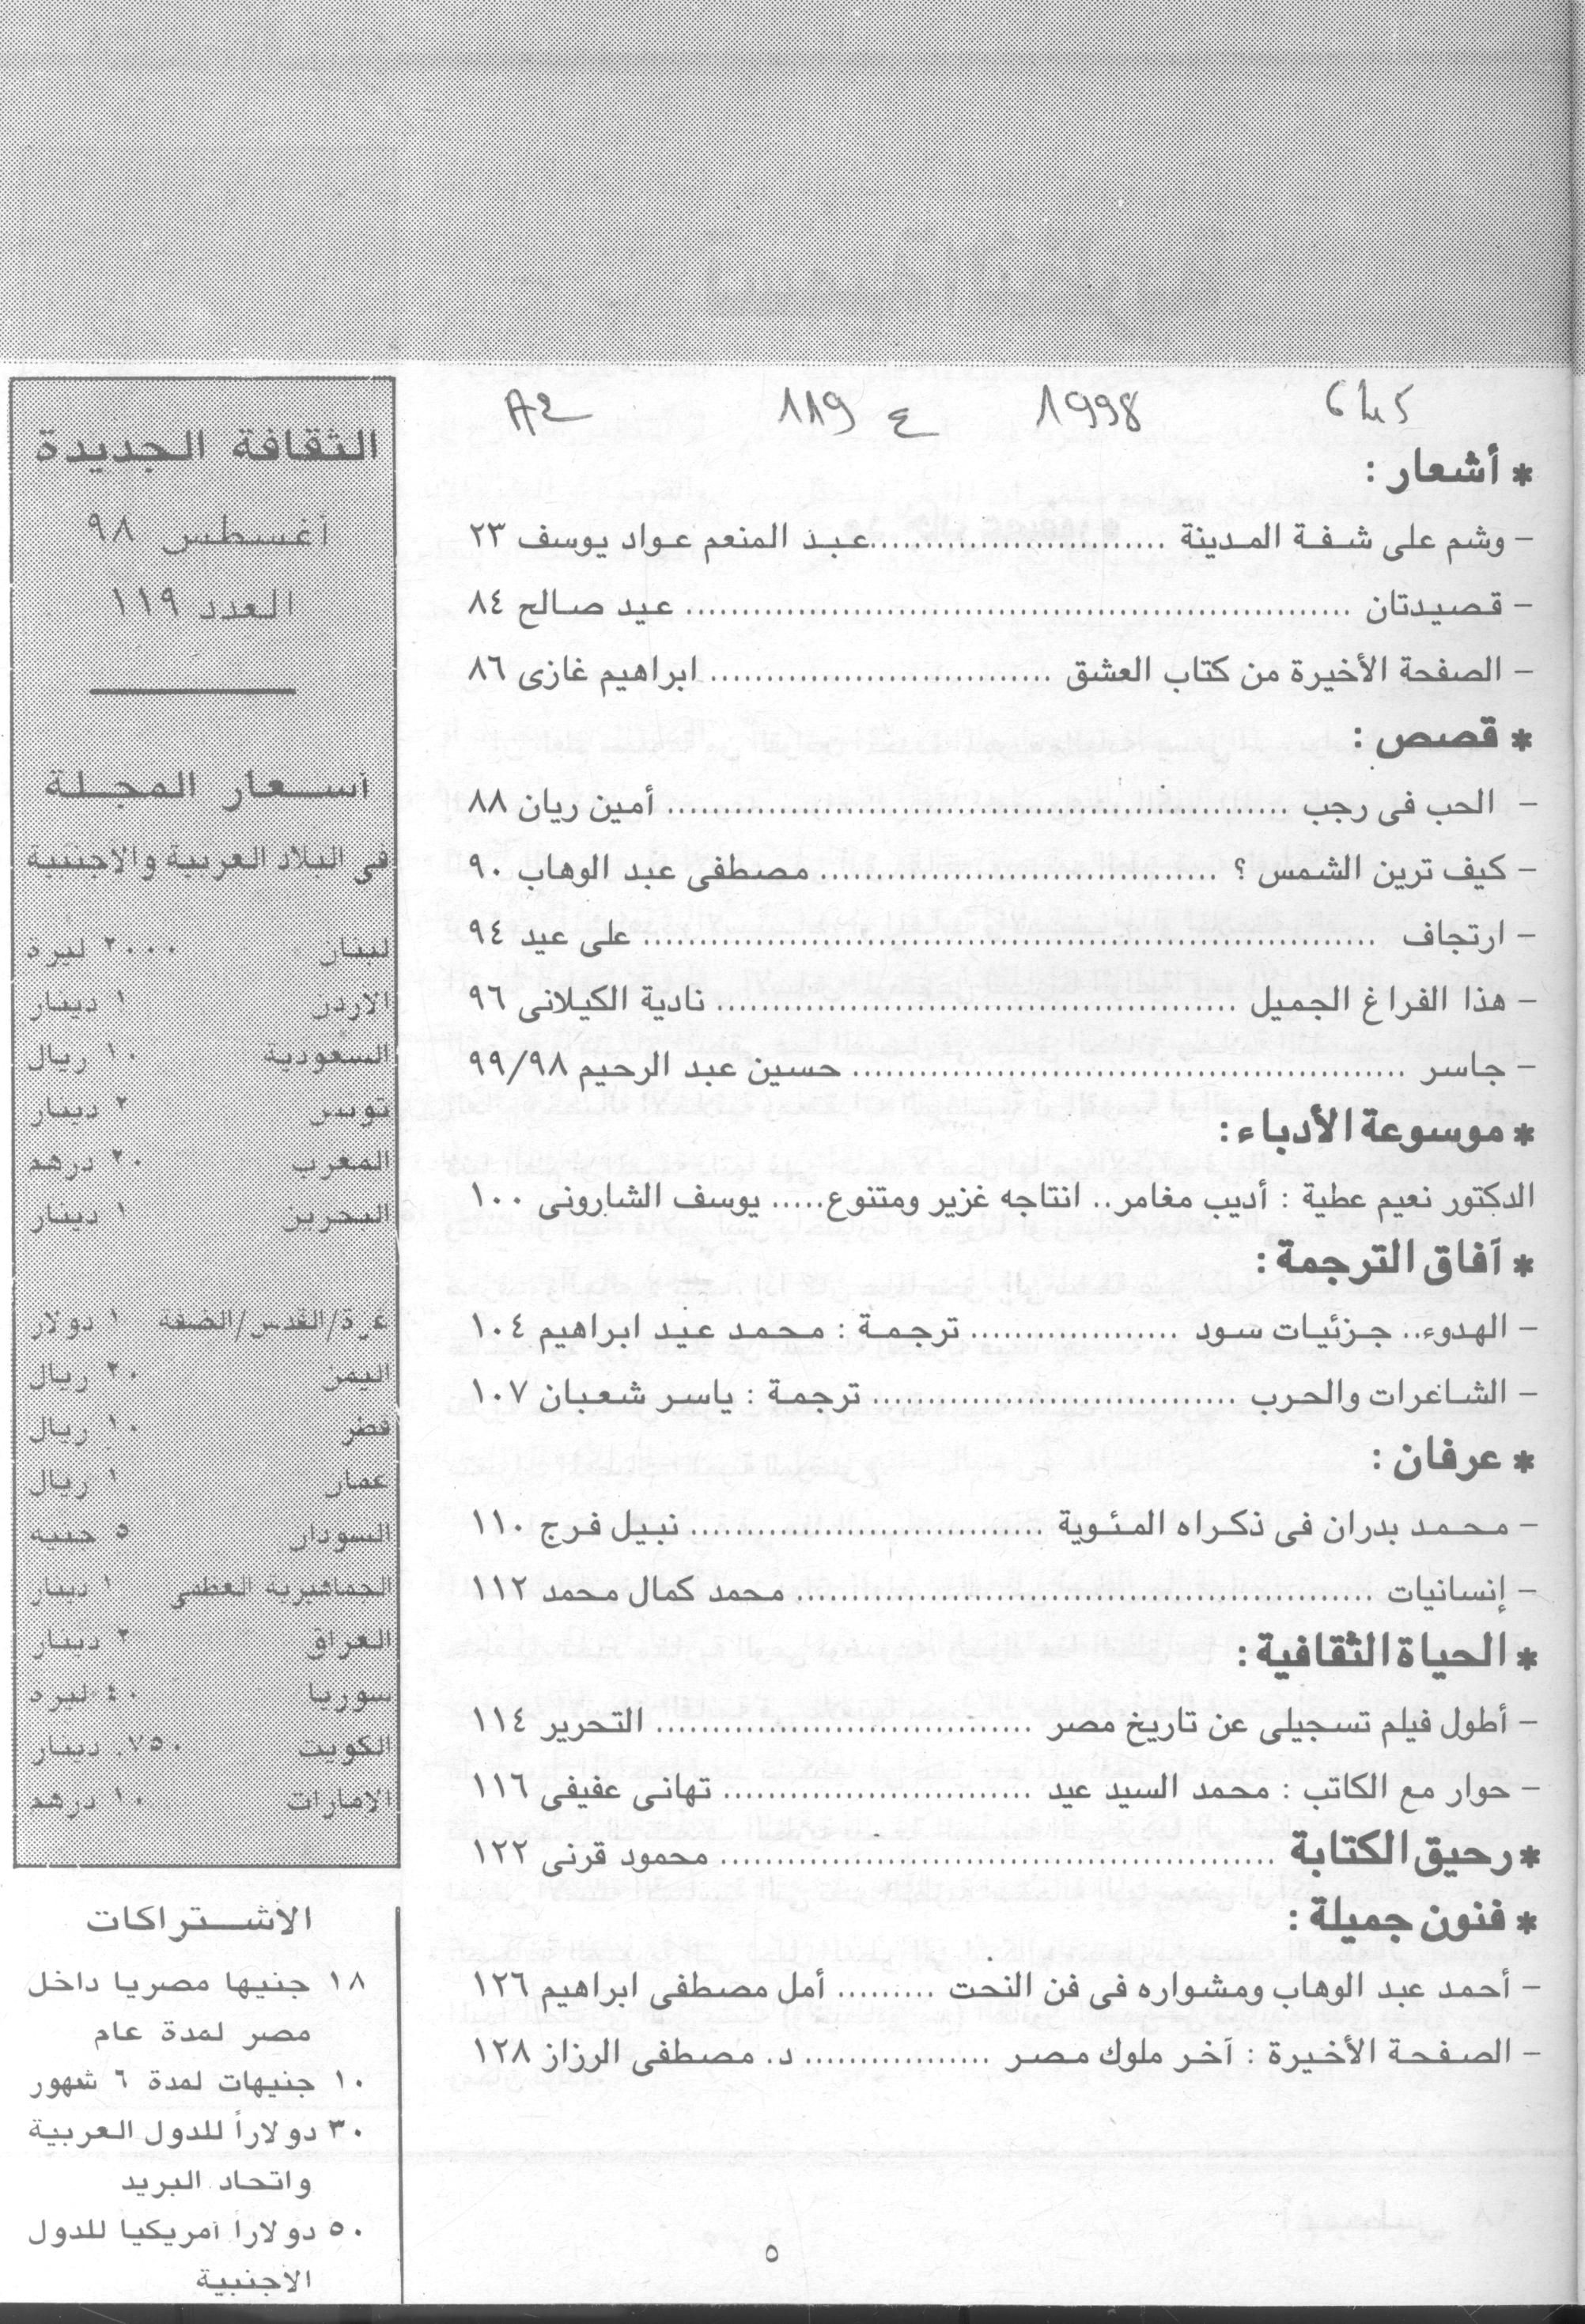 A2 119 ع 1998
* أشعار :
- وشم على شفة المدينة ............................عبد المنعم عواد يوسف ٢٣
- قصيدتان ............................................................ عيد صالح ٨٤
- الصفحة الأخيرة من كتاب العشق ............................... ابراهيم غازى ٨٦
* قصص :
- الحب فى رجب ........................................................ أمين ريان ٨٨
- كيف ترين الشمس ؟ .................................... مصطفى عبد الوهاب ٩٠
- ارتجاف .................................................................. على عيد ٩٤
- هذا الفراغ الجميل ............................................... نادية الكيلانى ٩٦
- جاسر .................................................. حسين عبد الرحيم ٩٩/٩٨
* موسوعة الأدباء :
الدكتور نعيم عطية : أديب مغامر.. انتاجه غزير ومتنوع..... يوسف الشارونى ١٠٠
* آفاق الترجمة :
- الهدوء.. جزئيات سود ................... ترجمة : محمد عيد ابراهيم ١٠٤
- الشاعرات والحرب ................................. ترجمة : ياسر شعبان ١٠٧
* عرفان :
- محمد بدران فى ذكراه المئوية ................................ نبيل فرج ١١٠
- إنسانيات .................................................... محمد كمال محمد ١١٢
* الحياة الثقافية :
- أطول فيلم تسجيلى عن تاريخ مصر .................................. التحرير ١١٤
- حوار مع الكاتب : محمد السيد عيد ............................ تهانى عفيفى ١١٦
* رحيق الكتابة .................................................. محمود قرنى ١٢٢
* فنون جميلة :
- أحمد عبد الوهاب ومشواره فى فن النحت ......... أمل مصطفى ابراهيم ١٢٦
- الصفحة الأخيرة : آخر ملوك مصر ................. د. مصطفى الرزاز ١٢٨
الثقافة الجديدة
أغسطس ٩٨
العدد ١١٩
أسعار المجلة
فى البلاد العربية والاجنبية
لبنان ٢٠٠٠ ليرة
الاردن ١ دينار
السعودية ١٠ ريال
تونس ٢ دينار
المغرب ٢٠ درهم
البحرين ١ دينار
غزة/القدس/الضفة ١ دولار
اليمن ٢٠ ريال
قطر ١٠ ريال
عمان ١ ريال
السودان ٥ جنيه
الجماهيرية العظمى ١ دينار
العراق ٢ دينار
سوريا ٤٠ ليرة
الكويت ٧٥٠. دينار
الامارات ١٠ درهم
الاشتراكات
١٨ جنيها مصريا داخل
مصر لمدة عام
١٠ جنيهات لمدة ٦ شهور
٣٠ دولاراً للدول العربية
واتحاد البريد
٥٠ دولارا أمريكيا للدول
الاجنبية
٥